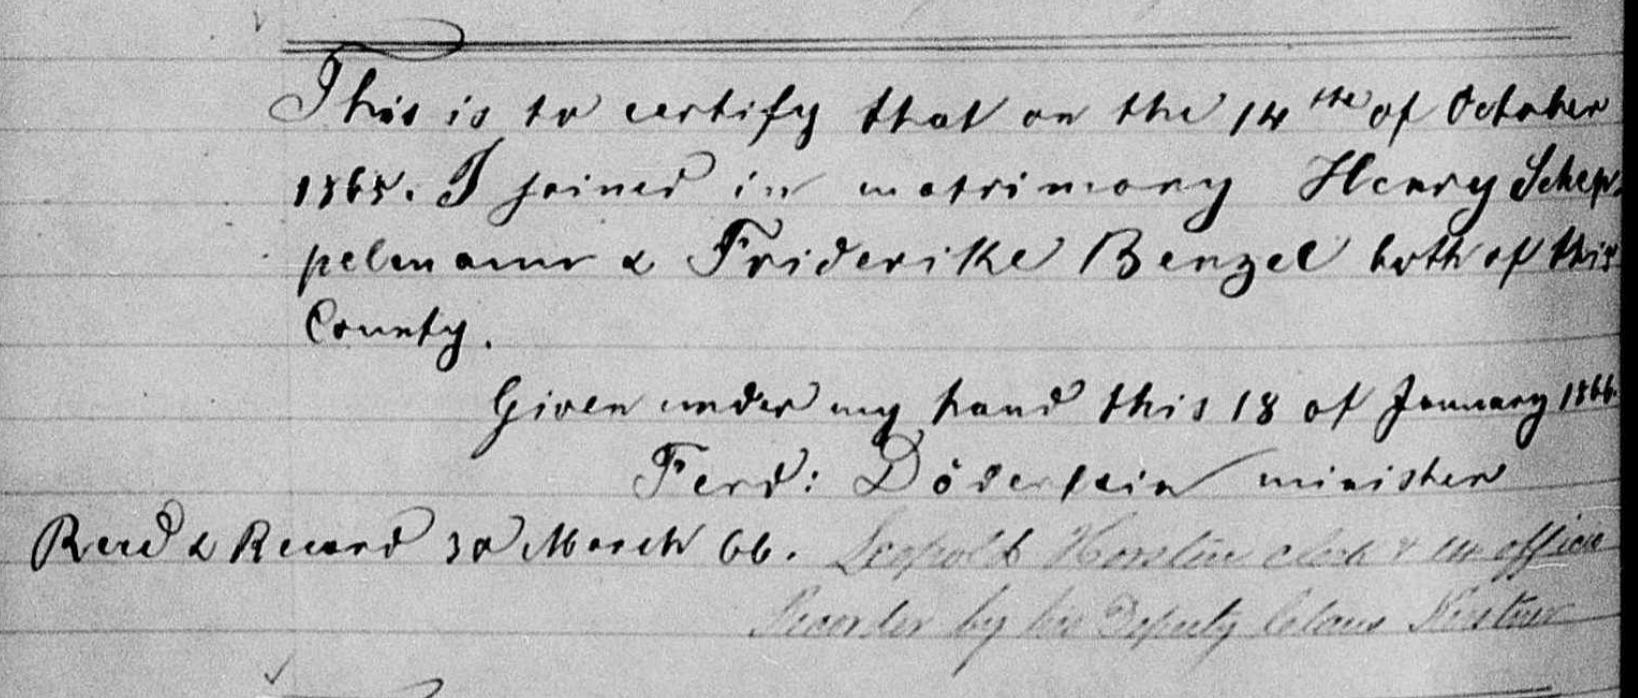 This is to certify that on the 14th of October
1865. I joined in matrimony Henry Schep-
pelmann & Friderike Benzel both of this
County.
Given under my hand this 18 of January 1866.
Ferd: Döderlein minister
Recd & Record 30 March 66. Leopold clerk & ex officio
Recorder by his Deputy